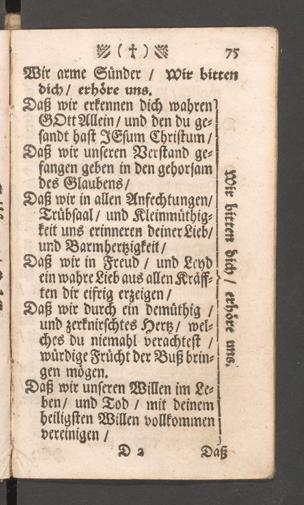 ( † ) 75
Wir arme Sünder / Wir bitten
dich / erhöre uns.
Daß wir erkennen dich wahren
GOtt Allein / und den du ge-
sandt hast JEsum Christum /
Daß wir unseren Verstand ge-
fangen geben in den gehorsam
des Glaubens /
Daß wir in allen Anfechtungen /
Trübsaal / und Kleinmüthig-
keit uns erinneren deiner Lieb /
und Barmhertzigkeit /
Daß wir in Freud / und Leyd
ein wahre Lieb aus allen Kräff-
ten dir eifrig erzeigen /
Daß wir durch ein demüthig /
und zerknirschtes Hertz / wel-
ches du niemahl verachtest /
würdige Frücht der Buß brin-
gen mögen.
Daß wir unseren Willen im Le-
ben / und Tod / mit deinem
heiligsten Willen vollkommen
vereinigen /
Wir bitten dich / erhöre uns.
D 2 Daß